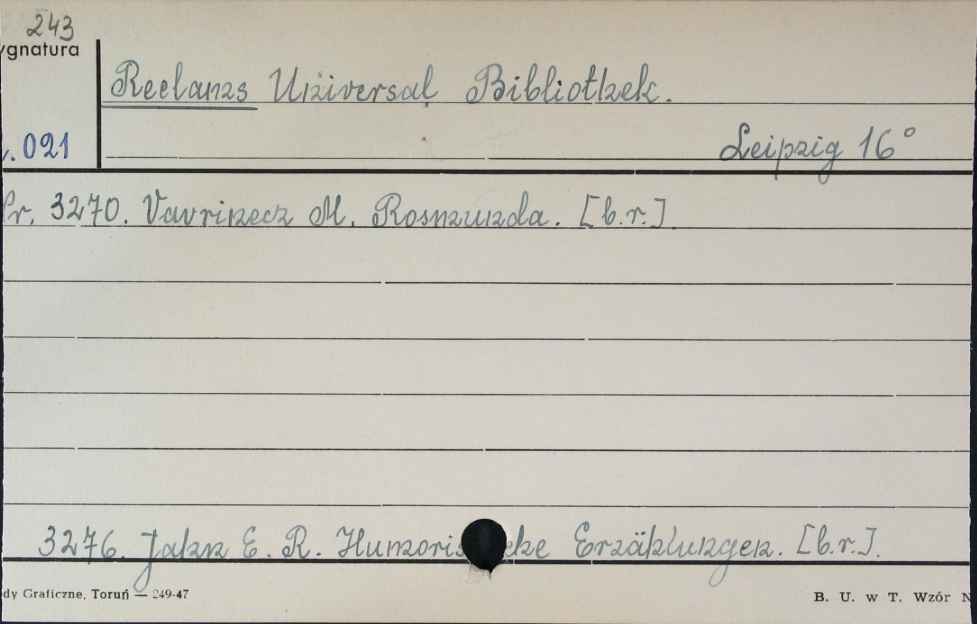 243
ygnatura
Reclams Universal Bibliothek.
021
Leipzig 16°
Nr. 3270. Vavrinecz M. Rosmunda. [b.r.]
3276. Jahn E. R. Humoris che Erzählungen. [b.r.].
dy Graficzne, Toruń — 249-47
B. U. w T. Wzór N